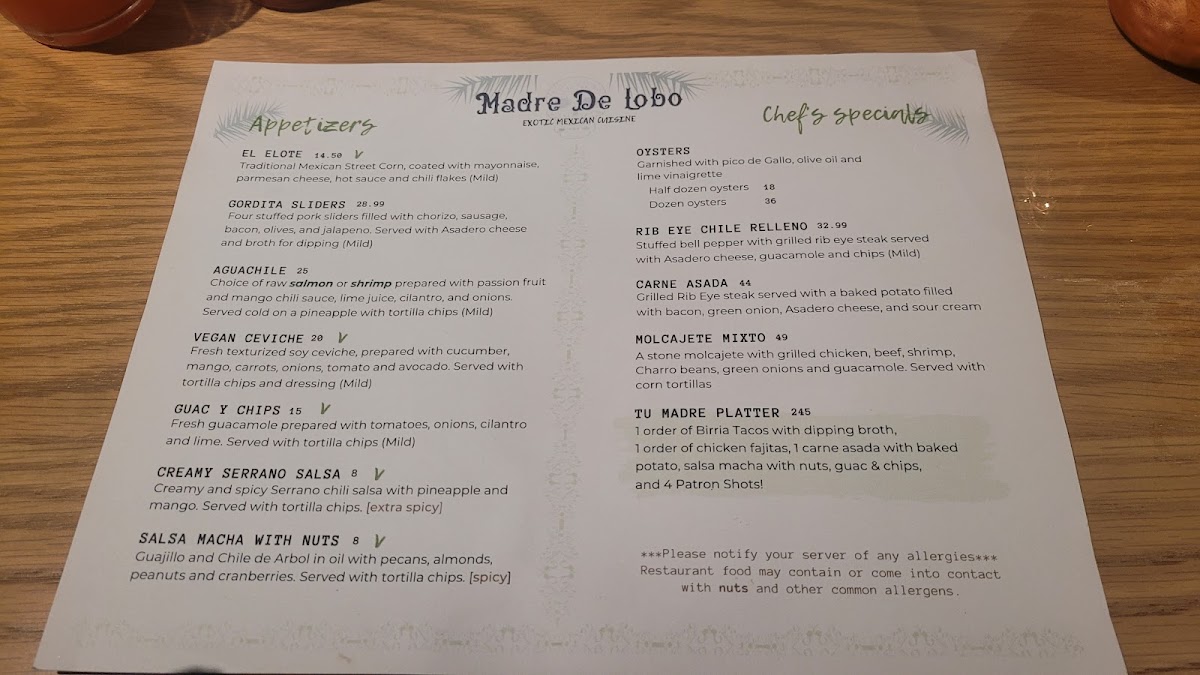 Madre De Lobo
EXOTIC MEXICAN CUISINE
Appetizers
EL ELOTE 14.50 V
Traditional Mexican Street Corn, coated with mayonnaise,
parmesan cheese, hot sauce and chili flakes (Mild)
GORDITA SLIDERS 28.99
Four stuffed pork sliders filled with chorizo, sausage,
bacon, olives, and jalapeno. Served with Asadero cheese
and broth for dipping (Mild)
AGUACHILE 25
Choice of raw salmon or shrimp prepared with passion fruit
and mango chili sauce, lime juice, cilantro, and onions.
Served cold on a pineapple with tortilla chips (Mild)
VEGAN CEVICHE 20 V
Fresh texturized soy ceviche, prepared with cucumber,
mango, carrots, onions, tomato and avocado. Served with
tortilla chips and dressing (Mild)
GUAC Y CHIPS 15 V
Fresh guacamole prepared with tomatoes, onions, cilantro
and lime. Served with tortilla chips (Mild)
CREAMY SERRANO SALSA 8 V
Creamy and spicy Serrano chili salsa with pineapple and
mango. Served with tortilla chips. [extra spicy]
SALSA MACHA WITH NUTS 8 V
Guajillo and Chile de Arbol in oil with pecans, almonds,
peanuts and cranberries. Served with tortilla chips. [spicy]
Chef's specials
OYSTERS
Garnished with pico de Gallo, olive oil and
lime vinaigrette
Half dozen oysters 18
Dozen oysters 36
RIB EYE CHILE RELLENO 32.99
Stuffed bell pepper with grilled rib eye steak served
with Asadero cheese, guacamole and chips (Mild)
CARNE ASADA 44
Grilled Rib Eye steak served with a baked potato filled
with bacon, green onion, Asadero cheese, and sour cream
MOLCAJETE MIXTO 49
A stone molcajete with grilled chicken, beef, shrimp,
Charro beans, green onions and guacamole. Served with
corn tortillas
TU MADRE PLATTER 245
1 order of Birria Tacos with dipping broth,
1 order of chicken fajitas, 1 carne asada with baked
potato, salsa macha with nuts, guac & chips,
and 4 Patron Shots!
***Please notify your server of any allergies***
Restaurant food may contain or come into contact
with nuts and other common allergens.